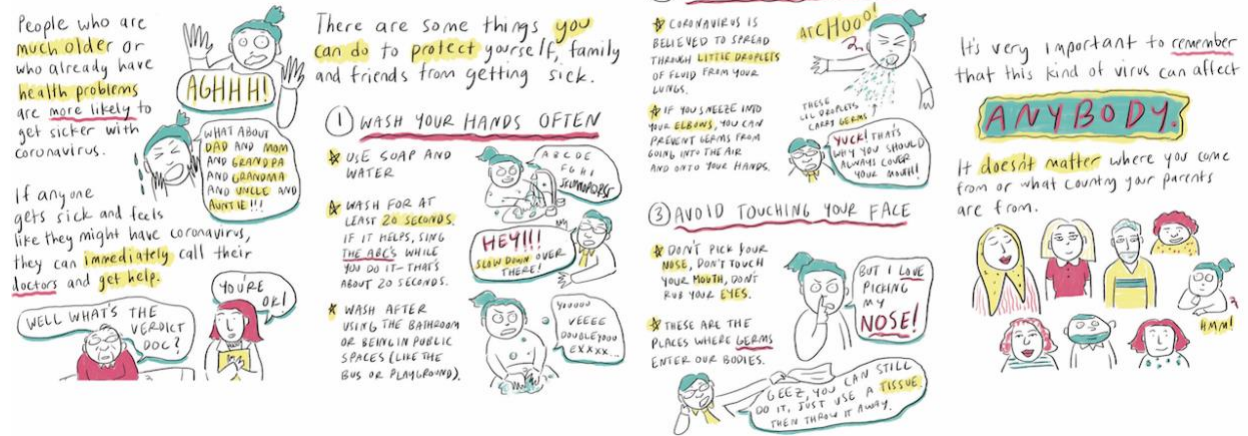 People who are
much older or
who already have
health problems
are more likely to
get sicker with
coronavirus.
AGHHH!
WHAT ABOUT
DAD AND MOM
AND GRANDPA
AND GRANDMA
AND UNCLE AND
AUNTIE!!!
If anyone
gets sick and feels
like they might have coronavirus,
they can immediately call their
doctors and get help.
WELL WHAT'S THE
VERDICT
DOC?
YOU'RE
OK!
There are some things you
can do to protect yourself, family
and friends from getting sick.
1 WASH YOUR HANDS OFTEN
USE SOAP AND
WATER
A B C D E
F G H I
WASH FOR AT
LEAST 20 SECONDS.
IF IT HELPS, SING
THE ABC'S WHILE
YOU DO IT—THAT'S
ABOUT 20 SECONDS.
HEY!!!
SLOW DOWN OVER
THERE!
WASH AFTER
USING THE BATHROOM
OR BEING IN PUBLIC
SPACES (LIKE THE
BUS OR PLAYGROUND).
VEEEE
DOUBLEYOU
EXXXX...
CORONAVIRUS IS
BELIEVED TO SPREAD
THROUGH LITTLE DROPLETS
OF FLUID FROM YOUR
LUNGS.
ATCHOOO!
THESE
LIL DROPLETS
CARRY GERMS
IF YOU SNEEZE INTO
YOUR ELBOWS, YOU CAN
PREVENT GERMS FROM
GOING INTO THE AIR
AND ONTO YOUR HANDS.
YUCK! THAT'S
WHY YOU SHOULD
ALWAYS COVER
YOUR MOUTH!
3 AVOID TOUCHING YOUR FACE
DON'T PICK YOUR
NOSE, DON'T TOUCH
YOUR MOUTH, DON'T
RUB YOUR EYES.
BUT I LOVE
PICKING
MY
NOSE!
THESE ARE THE
PLACES WHERE GERMS
ENTER OUR BODIES.
GEEZ, YOU CAN STILL
DO IT, JUST USE A TISSUE.
THEN THROW IT AWAY.
It's very important to remember
that this kind of virus can affect
ANYBODY.
It doesn't matter where you come
from or what country your parents
are from.
HMM!